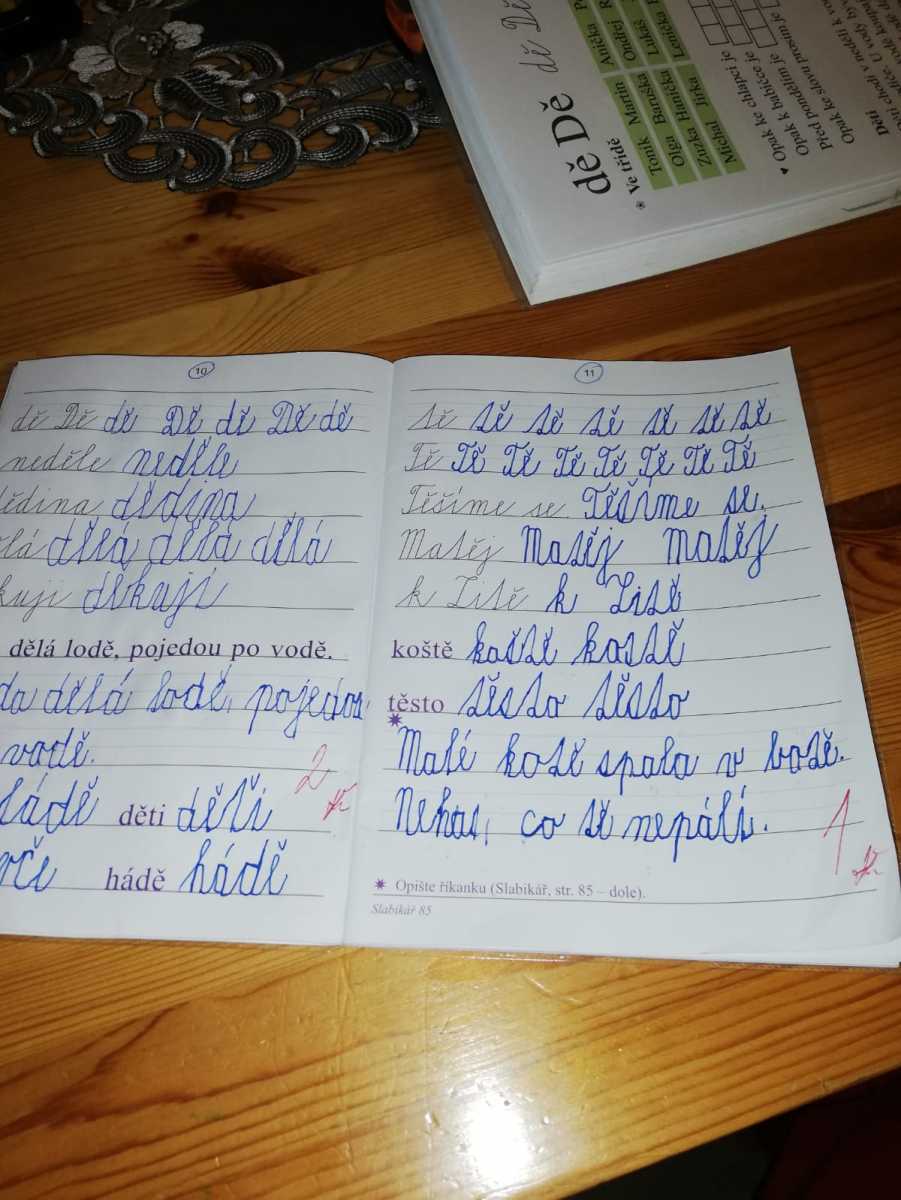 dě Dě dě Dě
Ve třídě
Toník Martin Anička
Olga Baruška Ondřej
Zuzka Hanička Lukáš
Michal Jirka Lenička
Opak ke chlapci je
Opak k babičce je
Před pondělím je
Opak ke slovu prosím je
Děti
10
dě Dě dě Dě dě Dě dě
neděle neděle
dědina
dělá dělá dělá
děkuji
dělá lodě, pojedou po vodě.
dělá lodě, pojedou
vodě.
2
děti děti
hádě hádě
11
tě tě tě tě tě tě tě
Tě Tě Tě Tě Tě Tě Tě Tě
Těšíme se. Těšíme se.
Matěj Matěj Matěj
k Titě k Titě
koště koště koště
těsto těsto těsto
Malé kotě spala v botě.
Nehas, co tě nepálí.
1
Opište říkanku (Slabikář, str. 85 – dole).
Slabikář 85